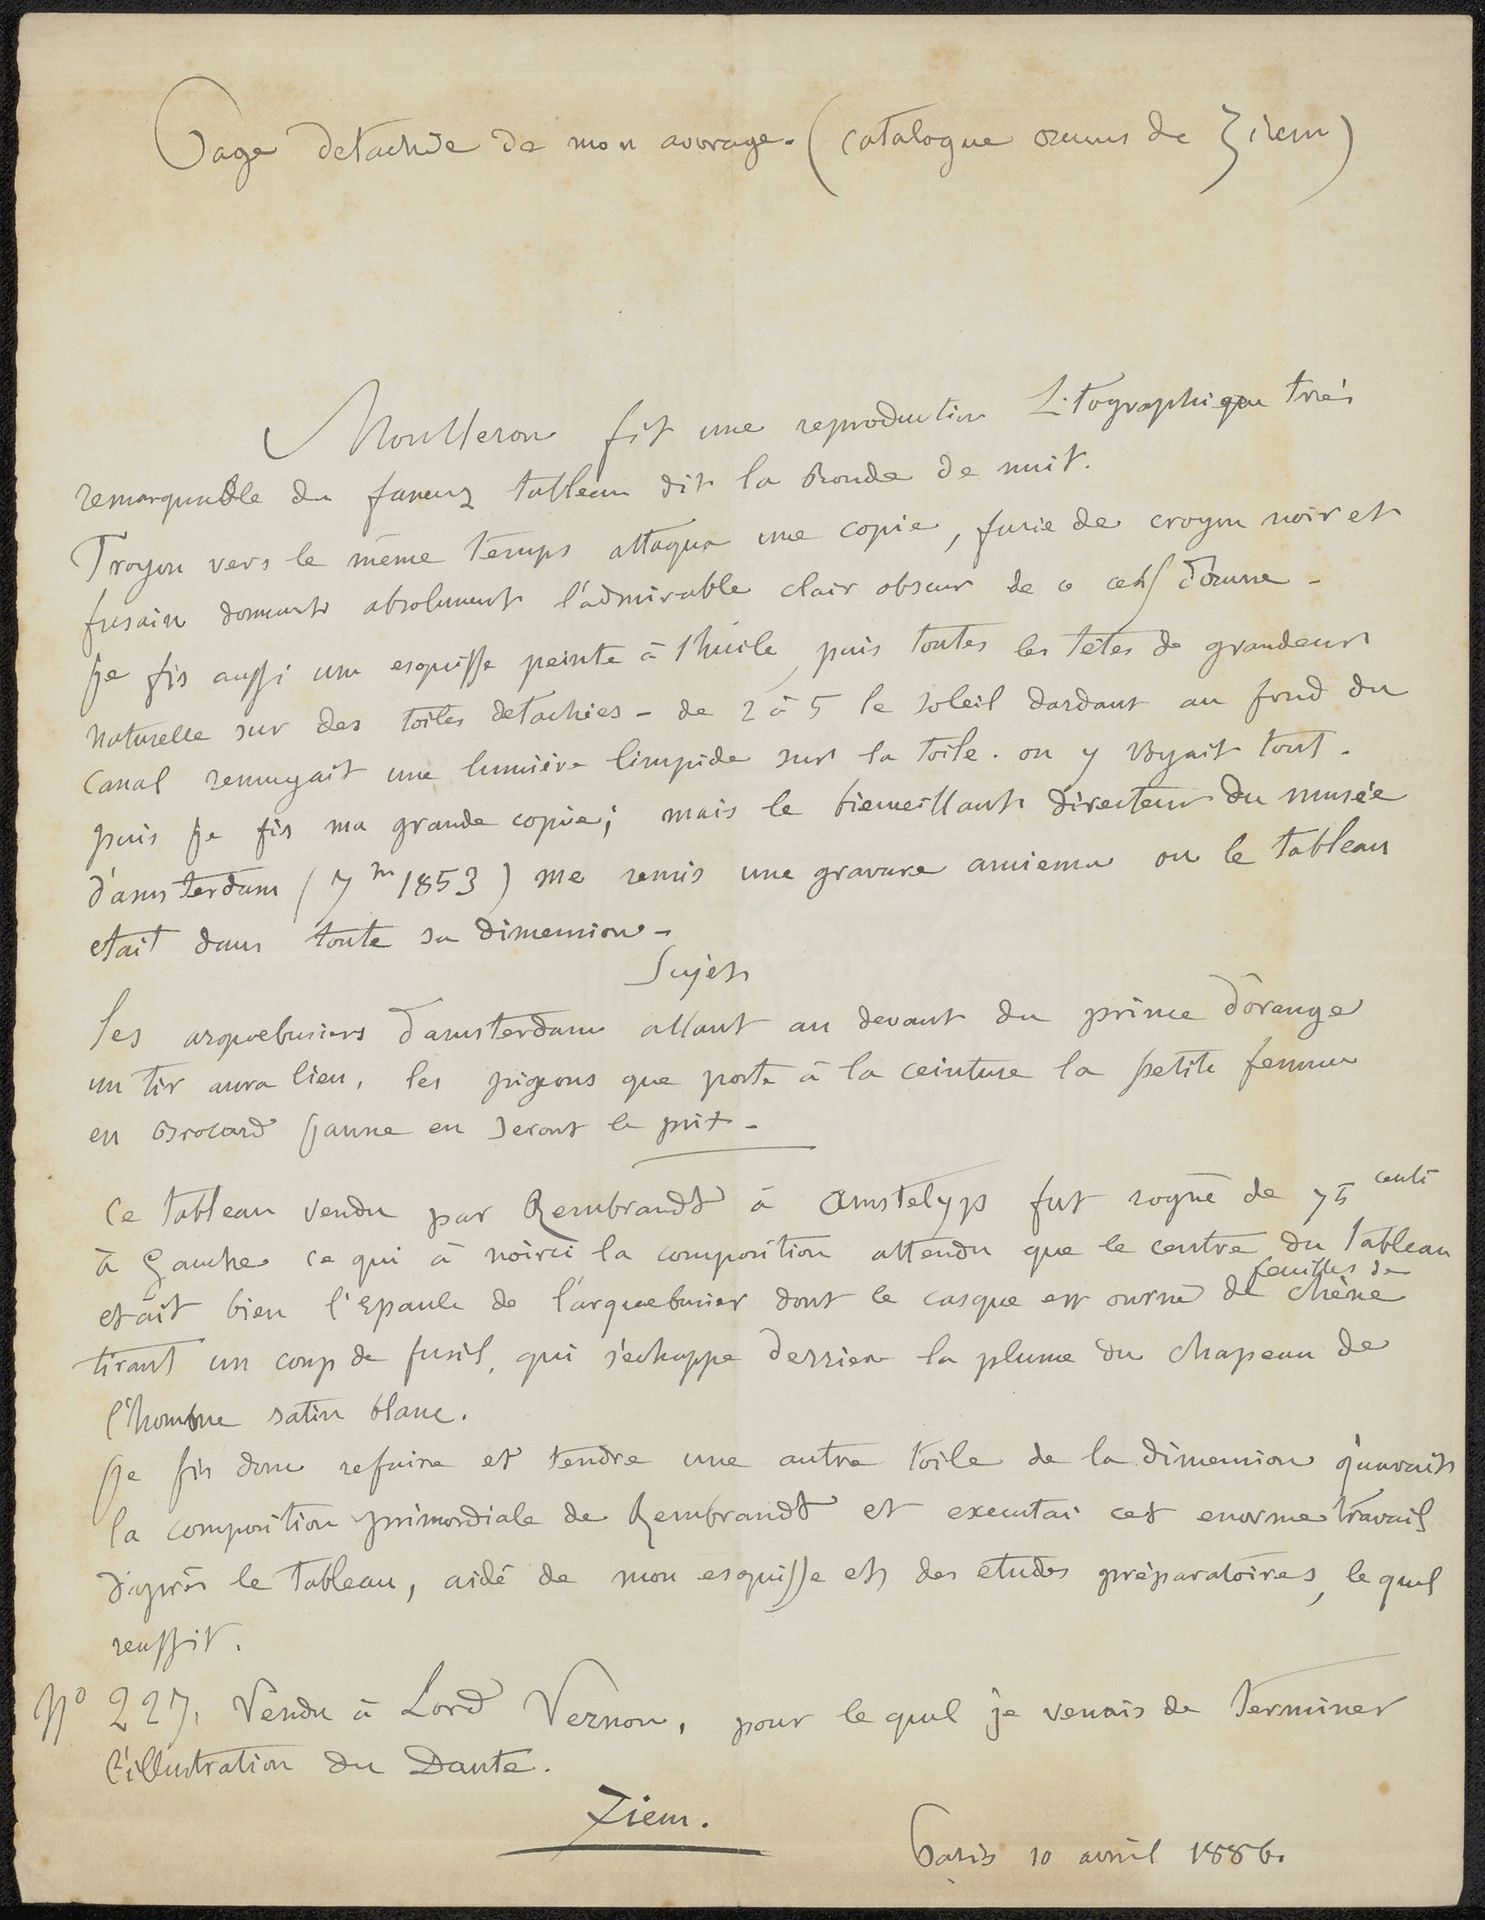 Page detachée de mon ouvrage. (catalogue œuvres de Ziem)
Mouilleron fit une reproduction Litographique très
remarquable du fameux tableau dit la Ronde de nuit.
Troyon vers le même temps attaqua une copie, furie de crayon noir et
fusain donnant absolument l'admirable clair obscur de ce chef d'œuvre -
Je fis aussi une esquisse peinte à l'huile, puis toutes les têtes de grandeur
naturelle sur des toiles detachées - de 2 à 5 le soleil dardant au fond du
canal renvoyait une lumière limpide sur la toile. on y voyait tout.
puis je fis ma grande copie; mais le bienveillant directeur du musée
d'amsterdam (7re 1853) me remis une gravure ancienne ou le tableau
etait dans toute sa dimension -
Sujet
Les arquebusiers d'amsterdam allant au devant du prince d'orange
un tir aura lieu, les pigeons que porte à la ceinture la petite femme
en Brocard jaune en seront le prix -
Ce tableau vendu par Rembrandt à fut rogné de 75 centi
à gauche ce qui à noirci la composition attendu que le centre du tableau
etait bien l'Epaule de l'arquebusier dont le casque est ourné de feuilles de chêne
tirant un coup de fusil, qui s'echappe derrière la plume du chapeau de
l'homme satin blanc.
Je fis donc refaire et tendre une autre toile de la dimension qu'avait
la composition primordiale de Rembrandt et executai cet enorme travail
d'après le tableau, aidé de mon esquisse et des etudes préparatoires, le quel
reussit.
No 227. Vendu à Lord Vernon, pour le quel je venais de terminer
l'illustration du Dante.
Ziem.
Paris 10 avril 1886.